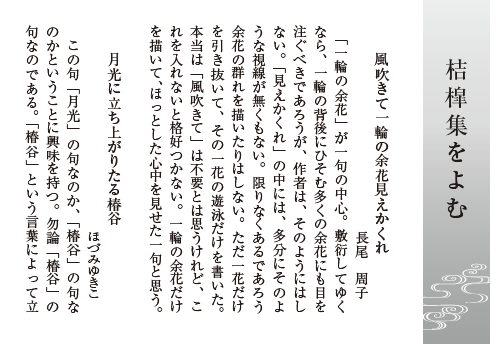 桔槹集をよむ
風吹きて一輪の余花見えかくれ
長尾　周子
「一輪の余花」が一句の中心。敷衍してゆく
なら、一輪の背後にひそむ多くの余花にも目を
注ぐべきであろうが、作者は、そのようにはし
ない。「見えかくれ」の中には、多分にそのよ
うな視線が無くもない。限りなくあるであろう
余花の群れを描いたりはしない。ただ一花だけ
を引き抜いて、その一花の遊泳だけを書いた。
本当は「風吹きて」は不要とは思うけれど、こ
れを入れないと格好つかない。一輪の余花だけ
を描いて、ほっとした心中を見せた一句と思う。
月光に立ち上がりたる椿谷
ほづみゆきこ
この句「月光」の句なのか、「椿谷」の句な
のかということに興味を持つ。勿論「椿谷」の
句なのである。「椿谷」という言葉によって立